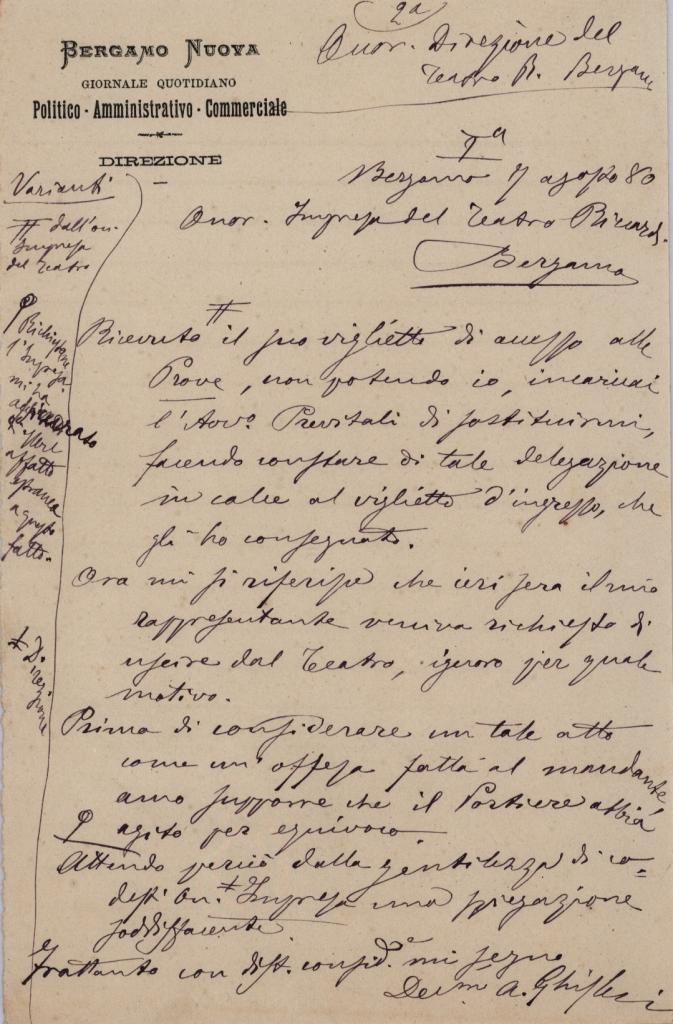 2a
Onor. Direzione del
Teatro R. Bergamo
BERGAMO NUOVA
GIORNALE QUOTIDIANO
Politico - Amministrativo - Commerciale
DIREZIONE
Iª
Bergamo 7 agosto 80
Onor. Impresa del Teatro Riccardi
Bergamo
Varianti
# dall'on.
Impresa
del Teatro
Ricevuto # il suo viglietto di accesso alle
Prove, non potendo io, incaricai
l'Avvo. Previtali di sostituirmi,
facendo constare di tale delegazione
in calce al viglietto d'ingresso, che
gli ho consegnato.
Ora mi si riferisce che ieri sera il mio
rappresentante veniva richiesto di
uscire dal Teatro, ignoro per quale
motivo.
Prima di considerare un tale atto
come un'offesa fatta al mandante,
amo supporre che il Portiere abbia
agito per equivoco
Attendo perciò dalla gentilezza di co=
dest' On. ‡ Impresa una spiegazione
soddisfacente
Frattanto con dist. consid.e mi segno
Dev.m A. Ghisleri
Richiestane
l'Impresa
mi ha
assicurato
di essere
affatto
estranea
a questo
fatto.
‡ Di
rezione